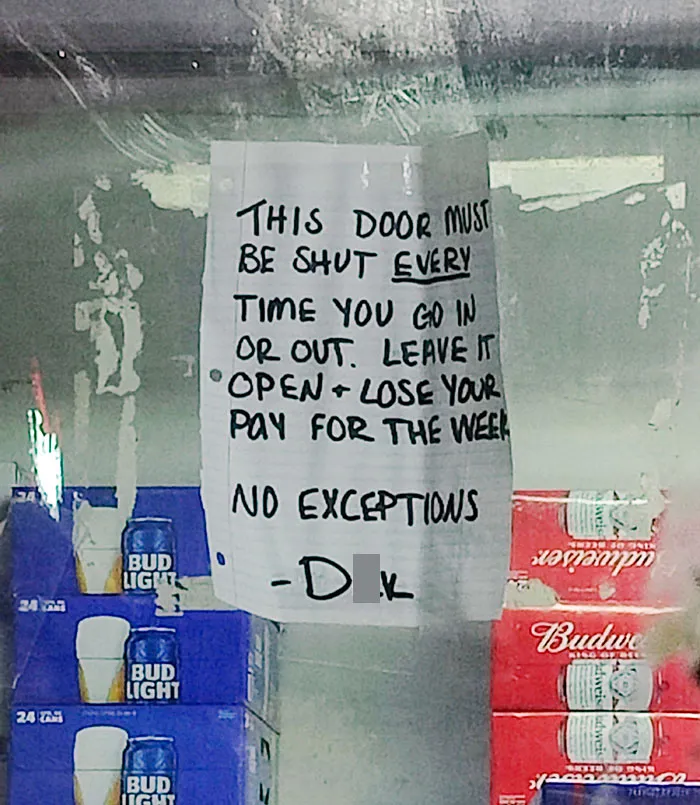 THIS DOOR MUST
BE SHUT EVERY
TIME YOU GO IN
OR OUT. LEAVE IT
OPEN + LOSE YOUR
PAY FOR THE WEEK
NO EXCEPTIONS
- D
BUD
LIGHT
24
BUD
LIGHT
24
BUD
LIGHT
Budweiser
Budwe
KING OF BEE